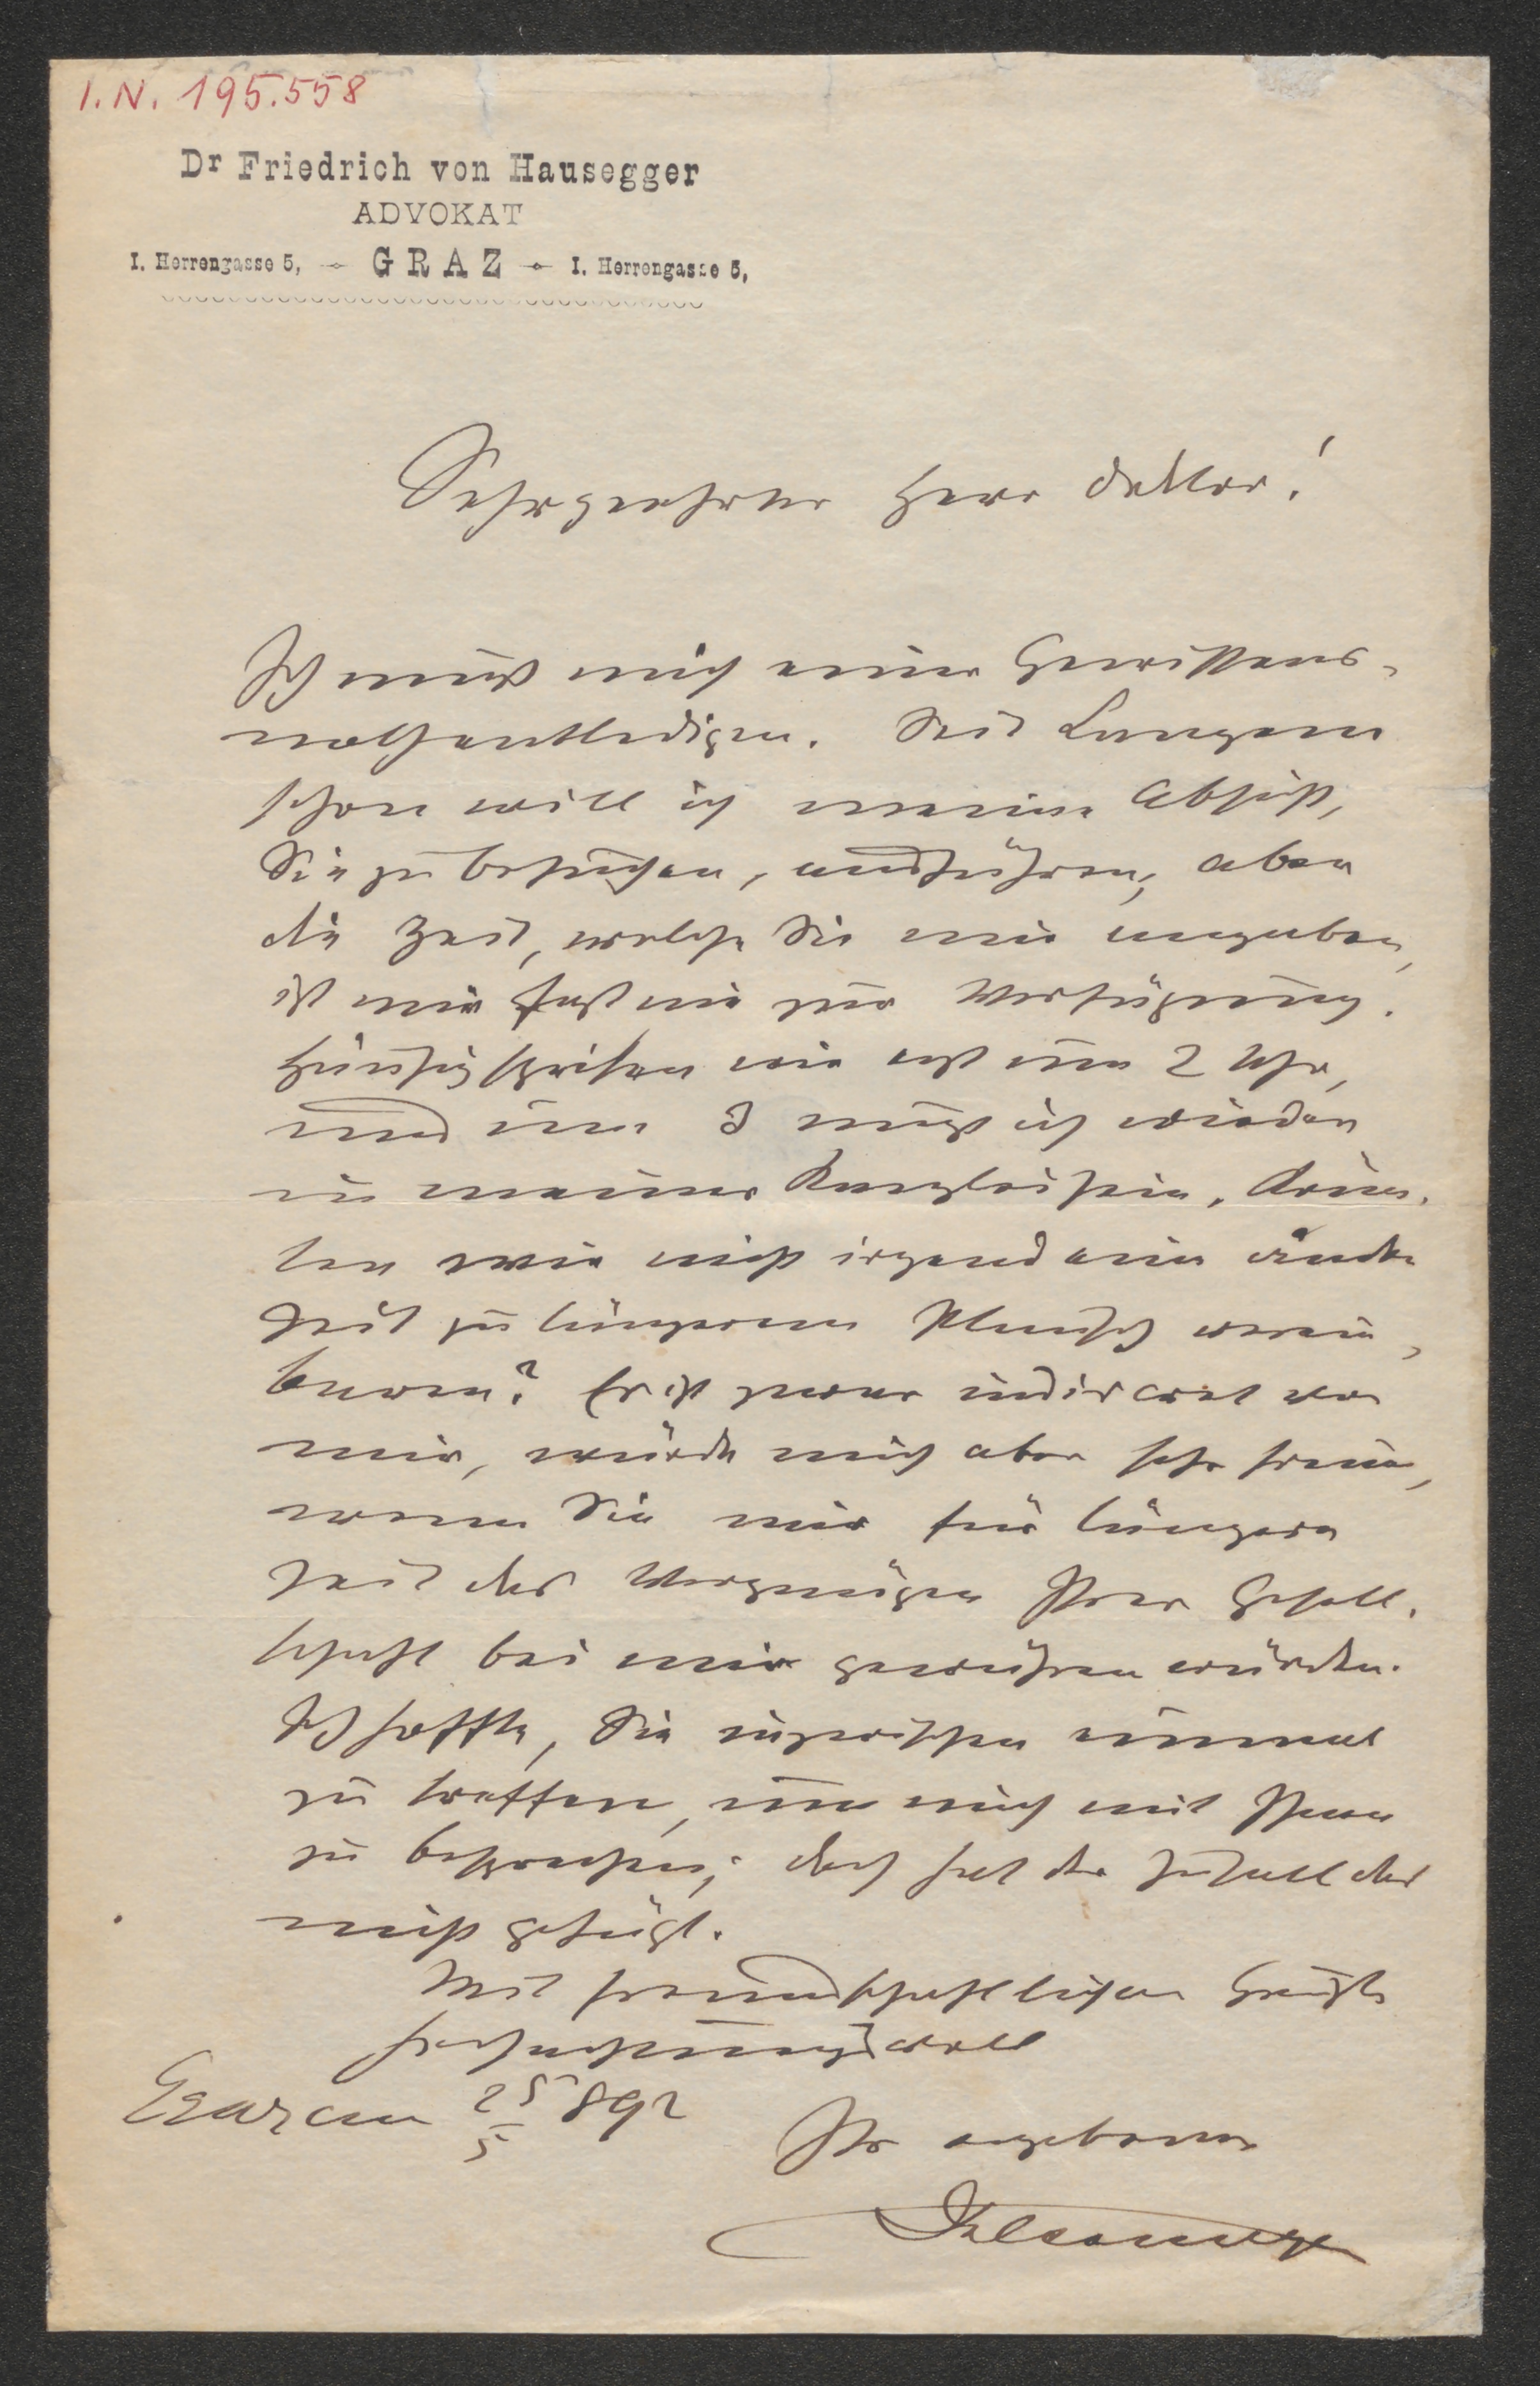 I.N. 195.558
Dr Friedrich von Hausegger
ADVOKAT
I. Herrengasse 5, GRAZ I. Herrengasse 5,
Sehrgeehrter Herr Doktor!
Ich muß mich einer Gewissens-
noth entledigen. Seit Langem
schon will ich meine Absicht,
Sie zu besuchen, ausführen, aber
die Zeit, welche Sie mir angaben,
ist mir fast nie zur Verfügung.
Häufig speisen wir erst um 2 Uhr,
und um 3 muß ich wieder
in meiner Kanzlei sein. Könn-
ten wir nicht irgend eine andere
Zeit zu längerem Plausch verein-
baren? Es ist zwar indiscret von
mir, würde mich aber sehr freuen,
wenn Sie mir für längere
Zeit das Vergnügen Ihrer Gesell-
schaft bei mir gewähren würden.
Ich hoffte, Sie inzwischen einmal
zu treffen, um mich mit Ihnen
zu besprechen; doch hat der Zufall das
nicht gefügt.
Mit freundschaftlichem Gruße
hochachtungsvoll
Graz am 25/5 892
Ihr ergebener